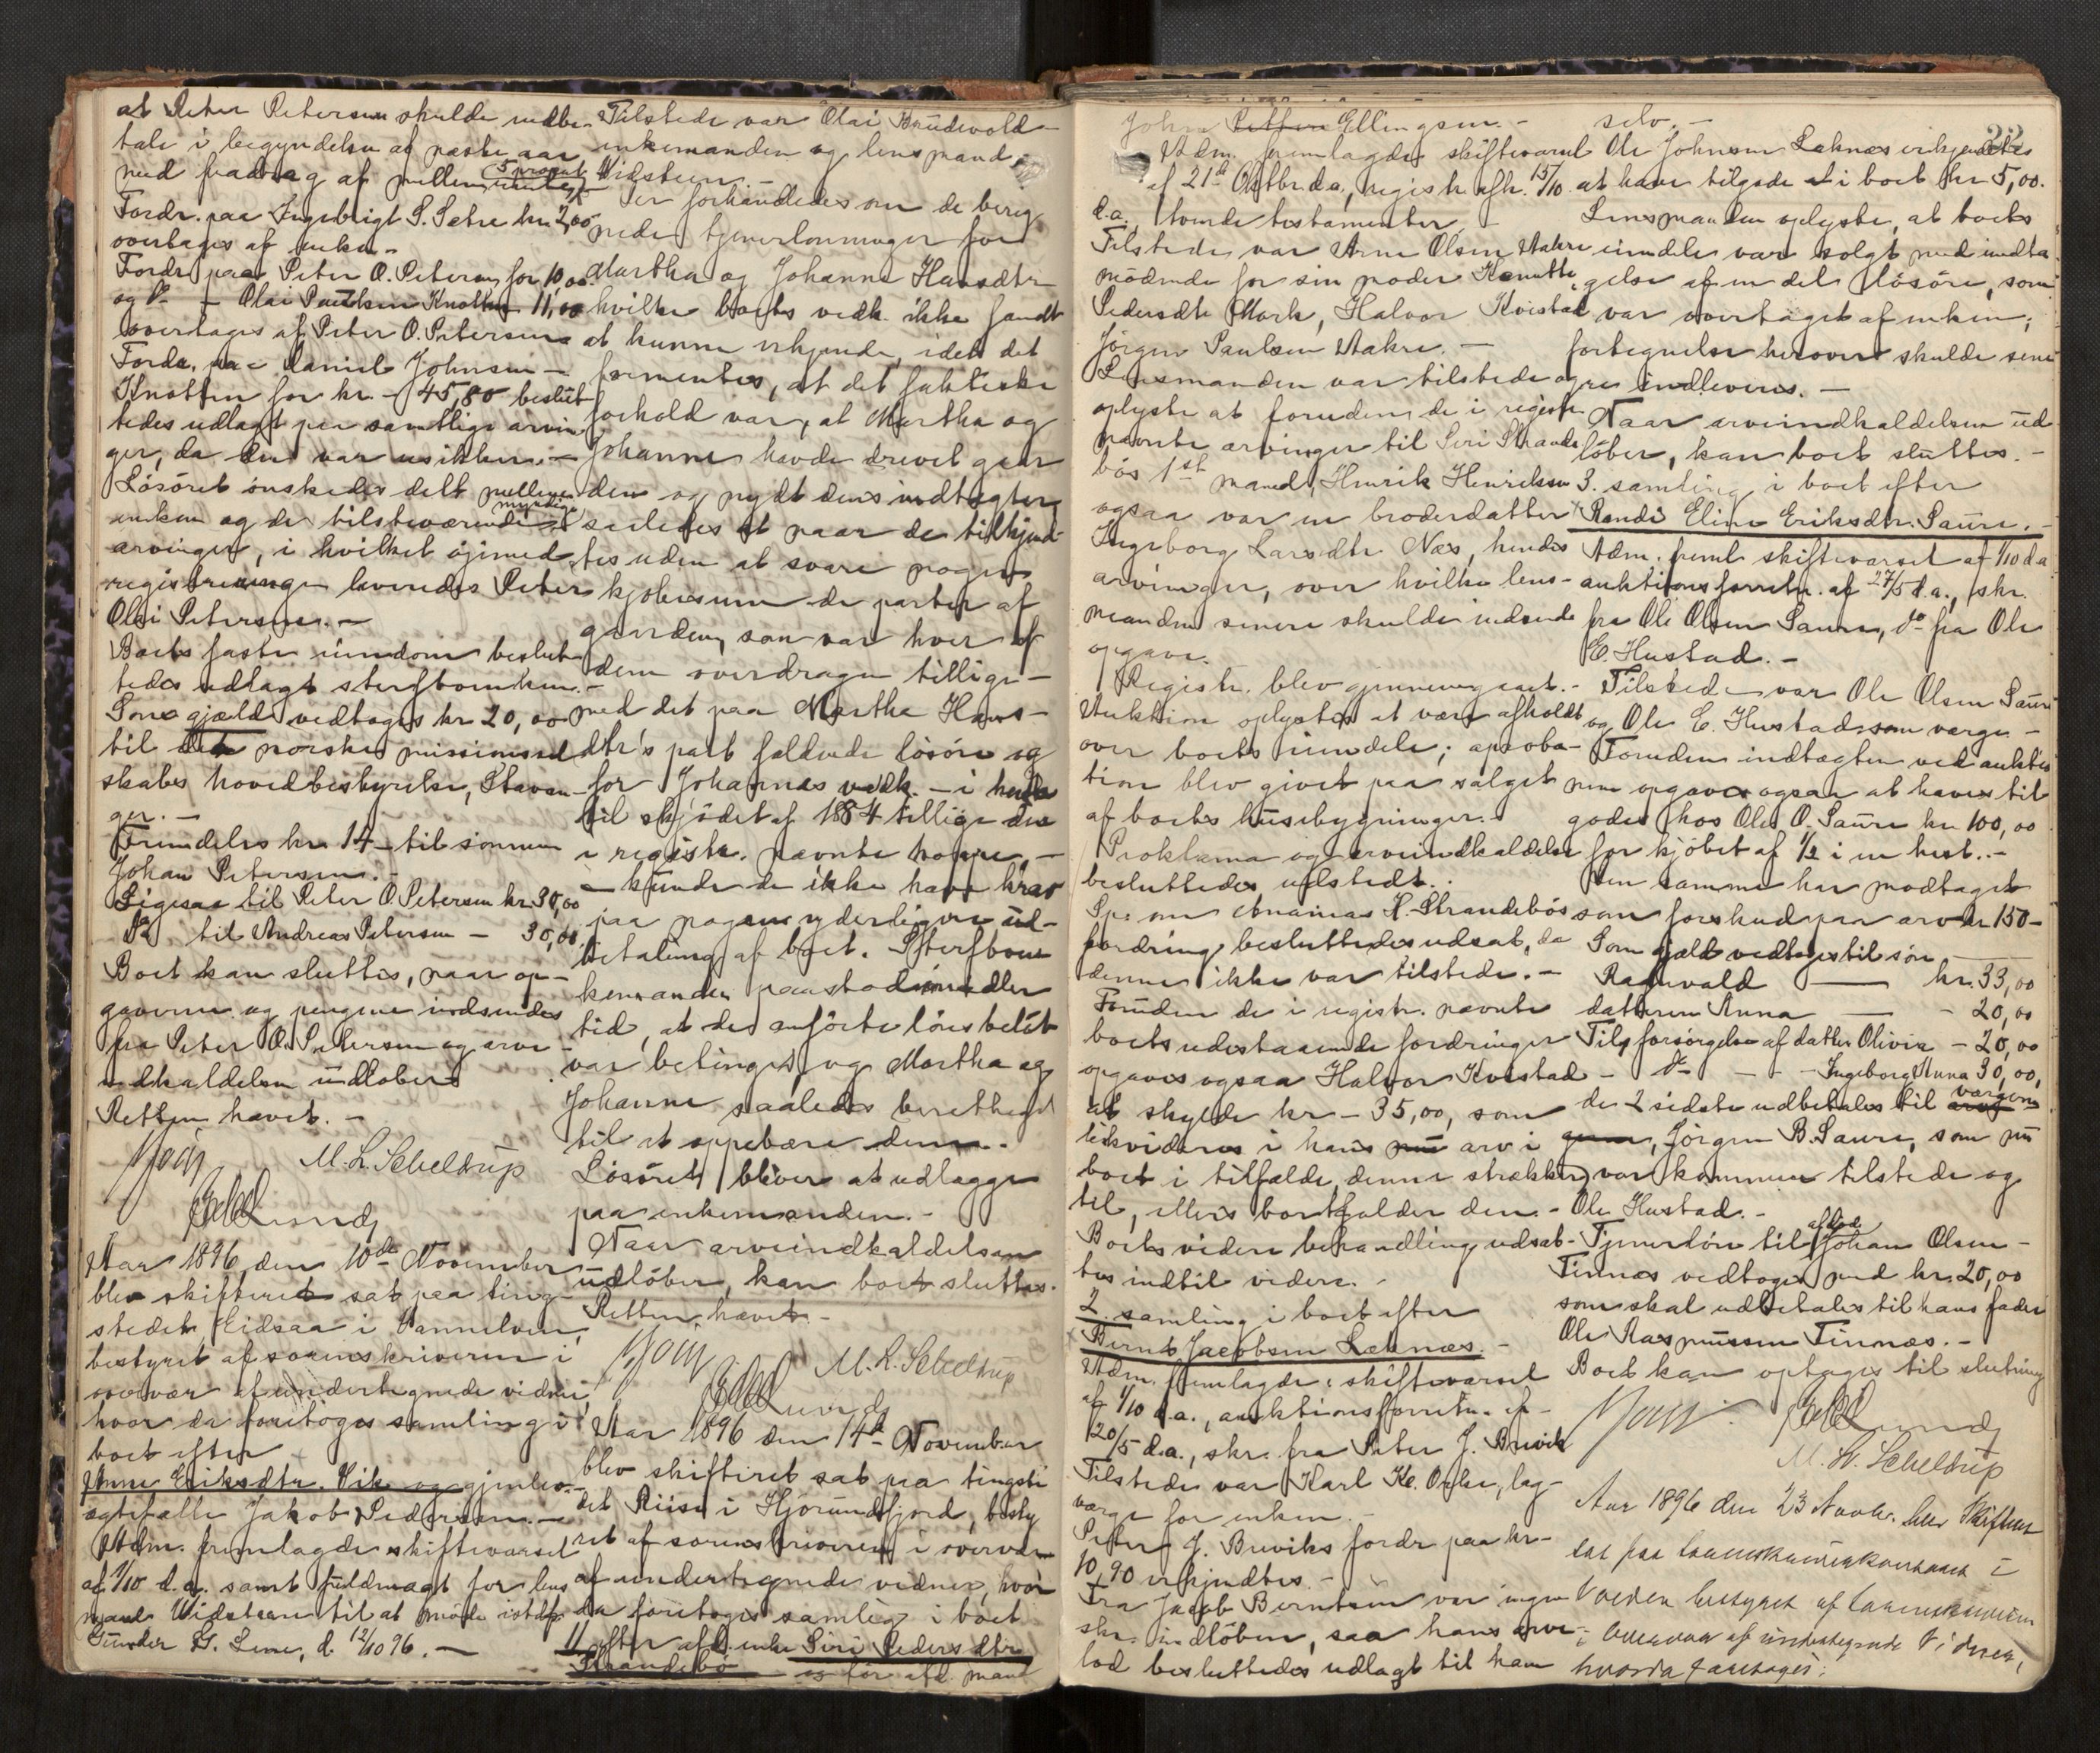 at Peter Petersen skulde indbe-
tale i begyndelsen af næste aar
med fradrag af mellem 5 procent
Fordr. paa Ingebrigt S. Sætre kr. 2,00
overtages af enken.-
Fordr. paa Peter O. Petersen for 10,00
og do - Olai Paulsen Knotten 11,00
overtages af Peter O. Petersen
Fordr. paa Daniel Johnsen -
Knotten for kr. - 45,80 beslut-
tedes udlagt paa samtlige arvin-
ger, da den var usikker.-
Løsöret önskedes delt mellem
enken og de tilstedeværende myndige
arvinger, i hvilket öiemed
registreringen leveredes Peter
Olai Petersen.-
Boets faste eiendom beslut-
tedes udlagt sterfboenken.-
Som gjæld vedtoges kr 20,00
til det norske missionssel-
skabs hovedbestyrelse, Stavan-
ger.-
Fremdeles kr. 14 - til sönnen
Johan Petersen.-
Ligesaa til Peter O. Petersen kr. 30,00
do til Andreas Petersen - 30,00
Boet kan sluttes, naar op-
gaverne og pengene indsendes
fra Peter O. Petersen og arve-
indkaldelsen udlöber
Retten hævet.-
M. L. Scheldrup
Lund
Aar 1896 den 10de November
blev skifteret sat paa ting-
stedet Eidsaa i Vannelven,
bestyret af sorenskriveren i
overvær af undertegnede vidner,
hvor da foretoges samling i
boet efter
Anne Eriksdtr. Vik og gjenlev.
ægtefælle Jakob Pedersen.-
Adm. fremlagde skiftevarsel
af 1/10 d.a. samt fuldmagt for lens
mand Vidsteen til at möde istdf.
Gunder G. Lene, d. 12/10 96.-
Tilstede var Olai Brudevold -
enkemanden og lensmand
Vidsteen.-
Der forhandledes om de bereg-
nede tjenerlönninger for
Martha og Johanne Hansdtr
hvilke boets vedk. ikke fandt
at kunne erkjende, idet det
formentes, at det faktiske
forhold var, at Martha og
Johanne havde drevet gaar-
den og nydt dens indtægter
saaledes at naar de tilkjend-
tes uden at svare nogen
kjöbesum de parter af
gaarden, som var hver af
dem overdragen tillige-
med det paa Martha Hans-
dtr's part faldende lösöre og
for Johannes vedk. - i henh.
til skjödet af 1884 tillige den
i registr. nævnte hoppe, -
- kunde de ikke have krav
paa nogen yderligere ud-
betaling af boet. Sterfboen-
kemanden paastod imidler
tid, at det anförte lönsbelöb
var betinget, og Martha og
Johanne saaledes berettiget
til at oppebære dem.-
Lösöret bliver at udlægge
paa enkemanden.-
Naar arveindkaldelsen
udlöber, kan boet sluttes.
Retten hævet.-
M. L. Scheldrup
Lund
Aar 1896 den 14de November
blev skifteret sat paa tingste
det Riise i Hjörundfjord, besty
ret af sorenskriveren i overvær
af undertegnede vidner, hvor
da foretoges samling i boet
1) efter afd. enke Siri Pedersdtr.
Strandebö og för afd. mand
22
John Petter Ellingsen.-
Adm. fremlagde skiftevarsel
af 21de Oktbr. d.a., registr. afh. 13/10
d.a., tvende testamenter.-
Tilstede var Arne Olsen Aakre
mödende for sin moder Karutte
Pedersdtr. Mork, Halvor Kvistad
Jörgen Paulsen Aakre.-
Lensmanden var tilstede og
oplyste at foruden de i registr.
nævnte arvinger til Siri Strande
bös 1ste mand, Henrik Henriksen
ogsaa var en broderdatter
Ingeborg Larsdtr. Næs, hendes
arvinger, over hvilke lens-
manden senere skulde indsende
opgave.
Registr. blev gjennemgaaet.-
Auktion oplystes at være afholdt
over boets eiendele; approba-
tion blev givet paa salget
af boets husebygninger.
Proklama og arveindkaldelse
besluttedes udstedt.
Spm. om Ananias H. Strandebös
fordring besluttedes udsat, da
denne ikke var tilstede.-
Foruden de i registr. nævnte
boets udestaaende fordringer
opgaves ogsaa Halvor Kvistad
at skylde kr - 35,00, som
likvideres i hans arv i
boet i tilfælde denne strækker
til, ellers bortfalder den.-
Boets videre behandling udsat-
tes indtil videre.-
2. samling i boet efter
Bernt Jacobsen Leknæs.-
Adm. fremlagde skiftevarsel
af 1/10 d.a., auktionsforretn. af
20/5 d.a., skr. fra Peter J. Brevik
Tilstede var Karl K. Orke, lag-
værge for enken.-
Peter J. Breviks fordr. paa kr-
10,90 erkjendtes.-
Fra Jacob Berntsen var ingen
skr. indlöben, saa hans arve-
lod besluttedes udlagt til ham
selv.-
Ole Johnsen Leknæs erkjendtes
at have tilgode i boet kr 5,00.
Lensmanden oplyste, at boets
eiendele var solgt med undta-
gelse af en del lösöre, som
var overtaget af enken;
fortegnelse herover skulde sene
re indleveres.-
Naar arveindkaldelsen ud
löber, kan boet sluttes.-
3. samling i boet efter
Randi Eline Eriksdtr. Saure.-
Adm. freml. skiftevarsel af 1/10 d.a
auktionsforretn. af 27/5 d.a., skr.
fra Ole Olsen Saure, do fra Ole
E. Hustad.-
Tilstede var Ole Olsen Saure
og Ole E. Hustad som værge.-
Foruden indtægten ved auktio
nen opgaves ogsaa at haves til
gode hos Ole O. Saure kr. 100,00
for kjöbet af 1/2 i en hest.-
Den samme har modtaget
som forskud paa arv kr 150-
Som gjæld vedtoges til søn
Ragnvald - kr. 33,00
datteren Anna - - 20,00
Til forsörgelse af datter Olivia - 20,00
- do - - Ingeborg Anna 30,00,
de 2 sidste udbetales til værgen
Jörgen B. Saure, som nu
var kommen tilstede og
Ole Hustad.-
Tjenerlön til afdöde Johan Olsen -
Finnæs vedtoges med kr. 20,00
som skal udbetales til hans fader
Ole Rasmussen Finnæs.-
Boet kan optages til slutning
Lund
M. L. Scheldrup
Aar 1896 den 23 Novbr. blev Skifteret
sat paa Sorenskriverkontoret i
Volden bestyret af Sorenskriveren
i Overvær af undertegnede Vidner,
hvorda foretoges: